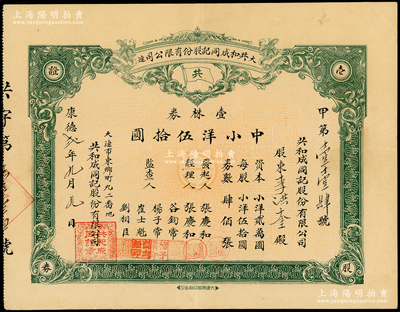 上海陽明陽明拍賣
大共和成同記股份有限公司造
壹
證
共
壹林券
中小洋伍拾圓
甲第壹壹肆號
共和成同記股份有限公司
股東李 殿
資本 小洋貳萬圓
每股 小洋伍拾圓
券數 肆佰張
發起人 張慶和
經理人 張慶和
谷鉤常
監查人 楊子常
崔士魁
劉相臣
大連市東鄉町九二番地
共和成同記股份有限公司
康德 年 月 日
共字第 號
券
股